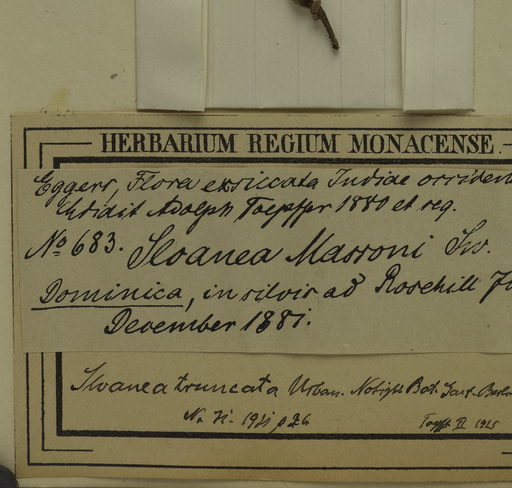 HERBARIUM REGIUM MONACENSE.
Eggers, Flora exsiccata Indiae occident
Edidit Adolph Toepffer 1880 et seq.
No 683. Sloanea Massoni Sw.
Dominica, in silvis ad Rosehill
December 1881.
Sloanea truncata Urban. Notizbl. Bot. Gart. Berlin
1921 p 26
1925